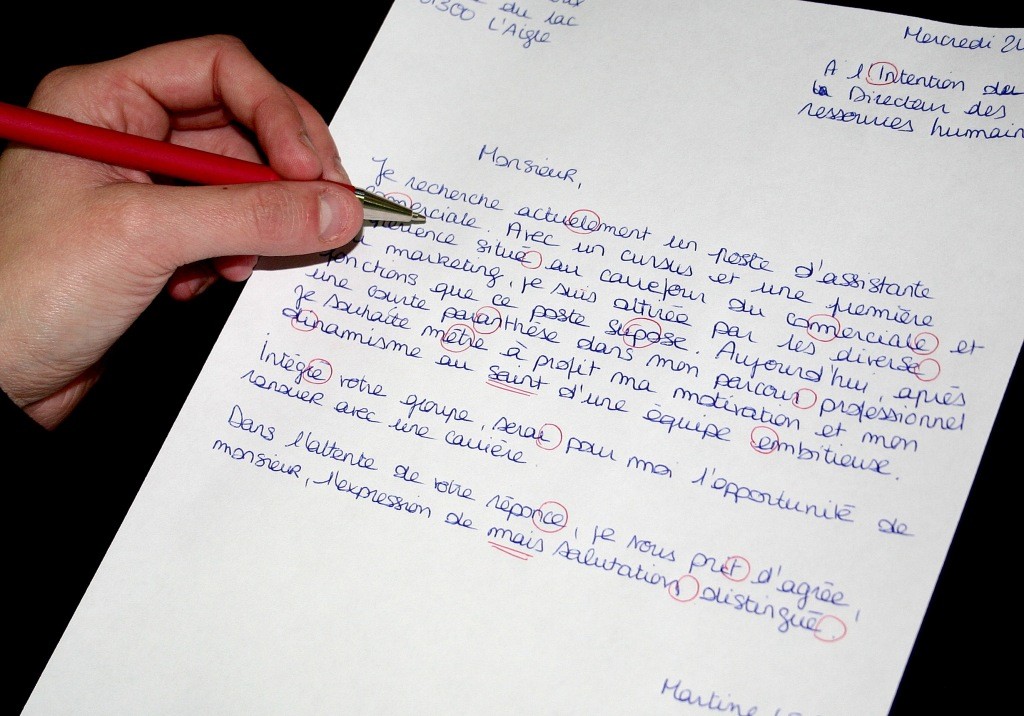 du lac
1300 L'Aigle
Mercredi 24
A l'Intention du
Directeur des
ressources humain
Monsieur,
Je recherche actuelement un poste d'assistante
comerciale. Avec un cursus et une première
situé au carrefour du comerciale et
marketing, je suis attirée par les diverse
fonctions que ce poste supose. Aujourd'hui, après
une courte paranthèse dans mon parcour professionnel
je souhaite mêtre à profit ma motivation et mon
dinamisme au saint d'une équipe embitieuse.
Intégré votre groupe, serai pour moi l'opportunité de
renouer avec une carrière.
Dans l'attente de votre réponce, je vous prit d'agrée,
monsieur, l'expression de mais salutation distingué.
Martine